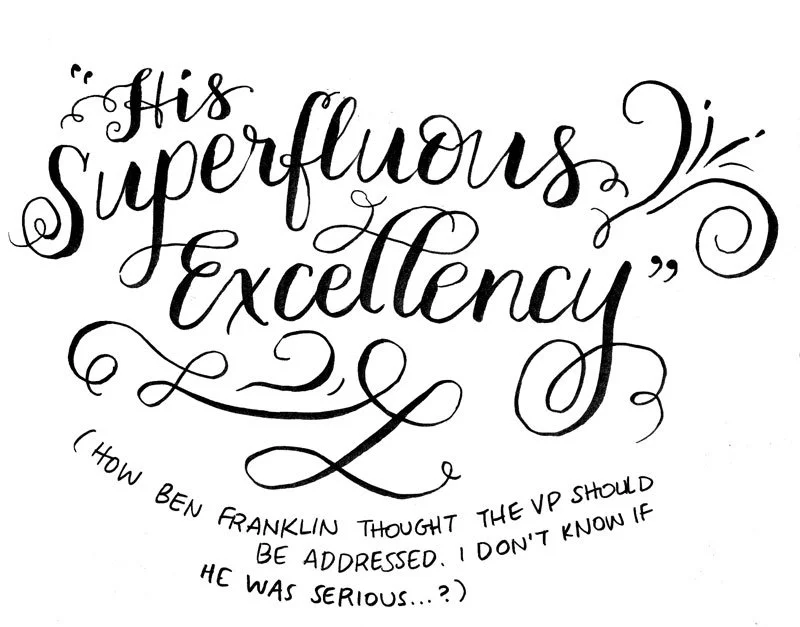 "His
Superfluous
Excellency"
(HOW BEN FRANKLIN THOUGHT THE VP SHOULD
BE ADDRESSED. I DON'T KNOW IF
HE WAS SERIOUS...?)